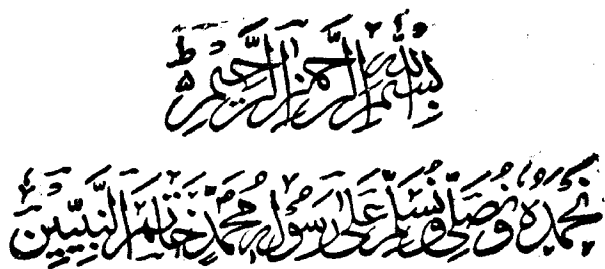 بِسْمِ اللهِ الرَّحْمٰنِ الرَّحِيْمِ ط
نَحْمَدُهٗ وَنُصَلِّي وَنُسَلِّمُ عَلٰى رَسُوْلِهٖ مُحَمَّدٍ خَاتَمِ النَّبِيِّيْنَ